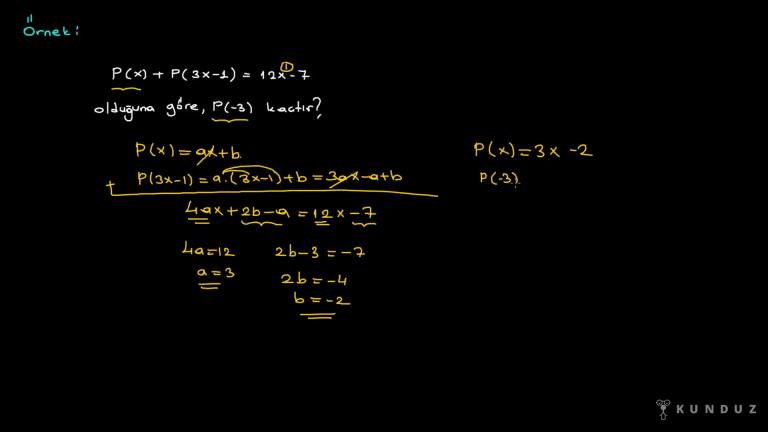 Örnek:
P(x) + P(3x-1) = 12x-7
①
olduğuna göre, P(-3) kaçtır?
P(x) = ax+b
+ P(3x-1) = a.(3x-1)+b = 3ax-a+b
4ax+2b-a = 12x-7
4a=12
a=3
2b-3 = -7
2b = -4
b = -2
P(x) = 3x -2
P(-3)
KUNDUZ